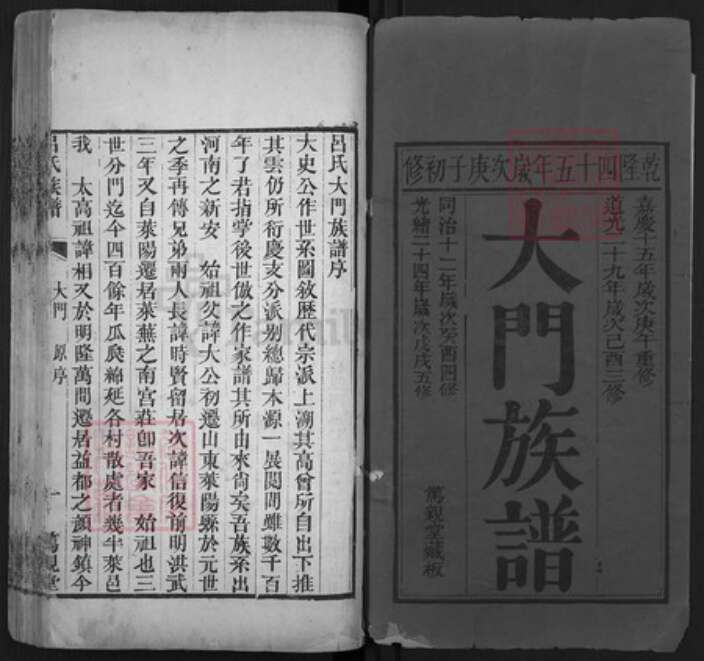 乾隆四十五年歲次庚子初修
嘉慶十五年歲次庚午重修
道光二十九年歲次己酉三修
大門族譜
同治十二年歲次癸酉四修
光緒二十四年歲次戊戌五修
篤親堂藏板
呂氏大門族譜序
太史公作世系圖敘歷代宗派上溯其高曾所自出下推
其雲仍所衍慶支分派別總歸本源一展閱間雖數千百
年了君指掌後世倣之作家譜其所由來尚矣吾族系出
河南之新安 始祖父諱大公初遷山東萊陽縣於元世
之季再傳兄弟兩人長諱時賢留居次諱信復前明洪武
三年又自萊陽遷居萊蕪之南宮莊卽吾家 始祖也三
世分門迄今四百餘年瓜瓞綿延各村散處者幾半萊邑
我 太高祖諱相又於明隆萬間遷居益都之顏神鎮今
呂氏族譜 大門 原序 一 篤親堂